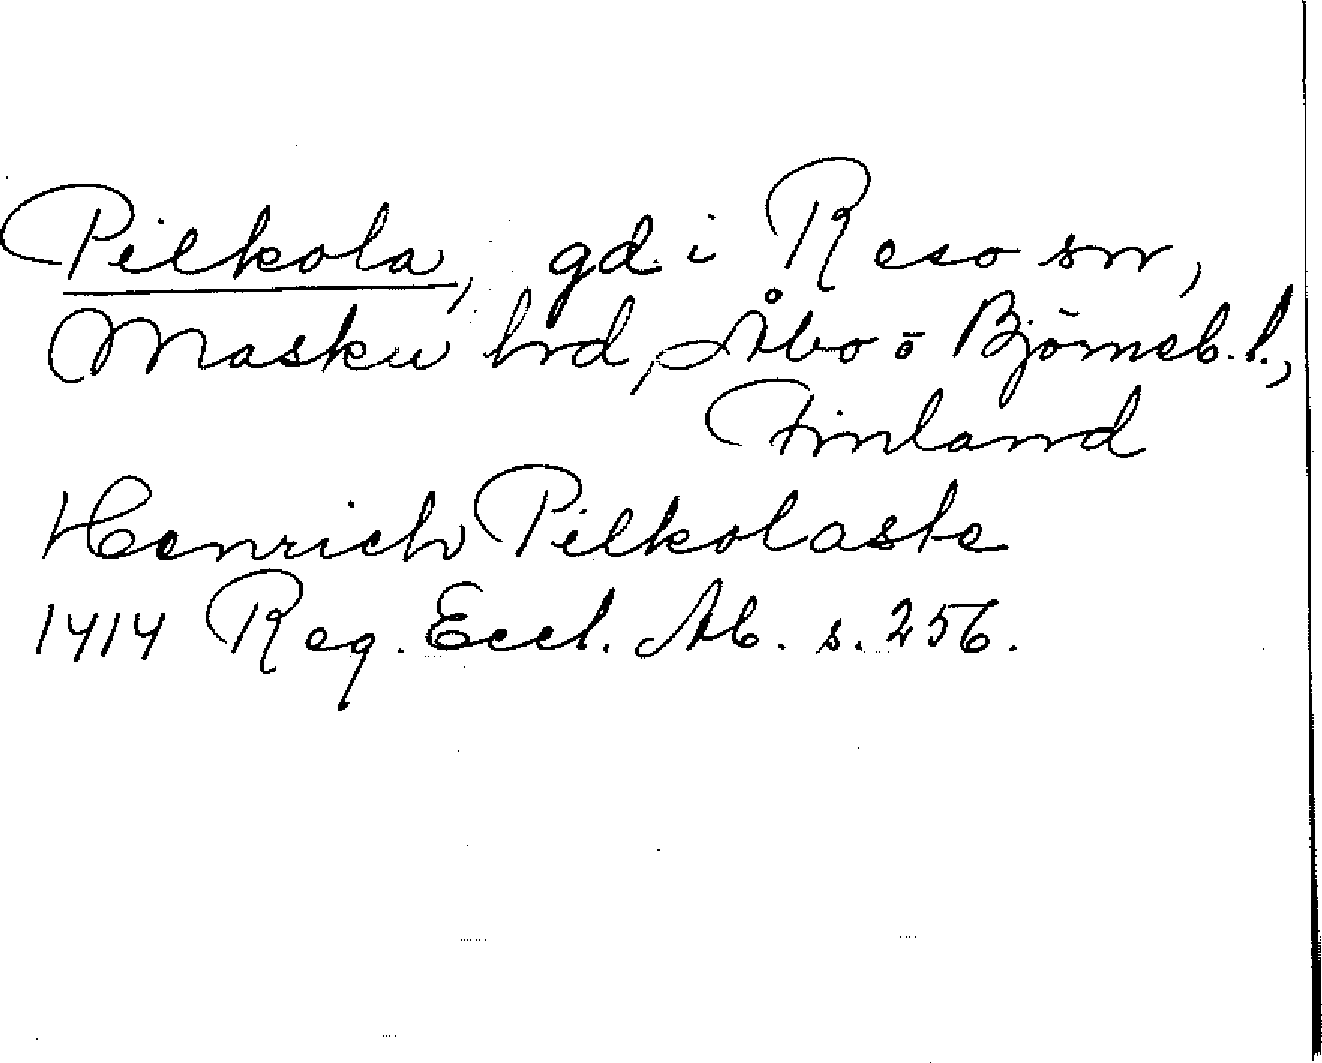 Pilkola, gd i Reso sn,
Masku hrd, Åbo o Björneb. l.,
Finland
Henrich Pilkolaste
1414 Reg. Eccl. Ab. s. 256.